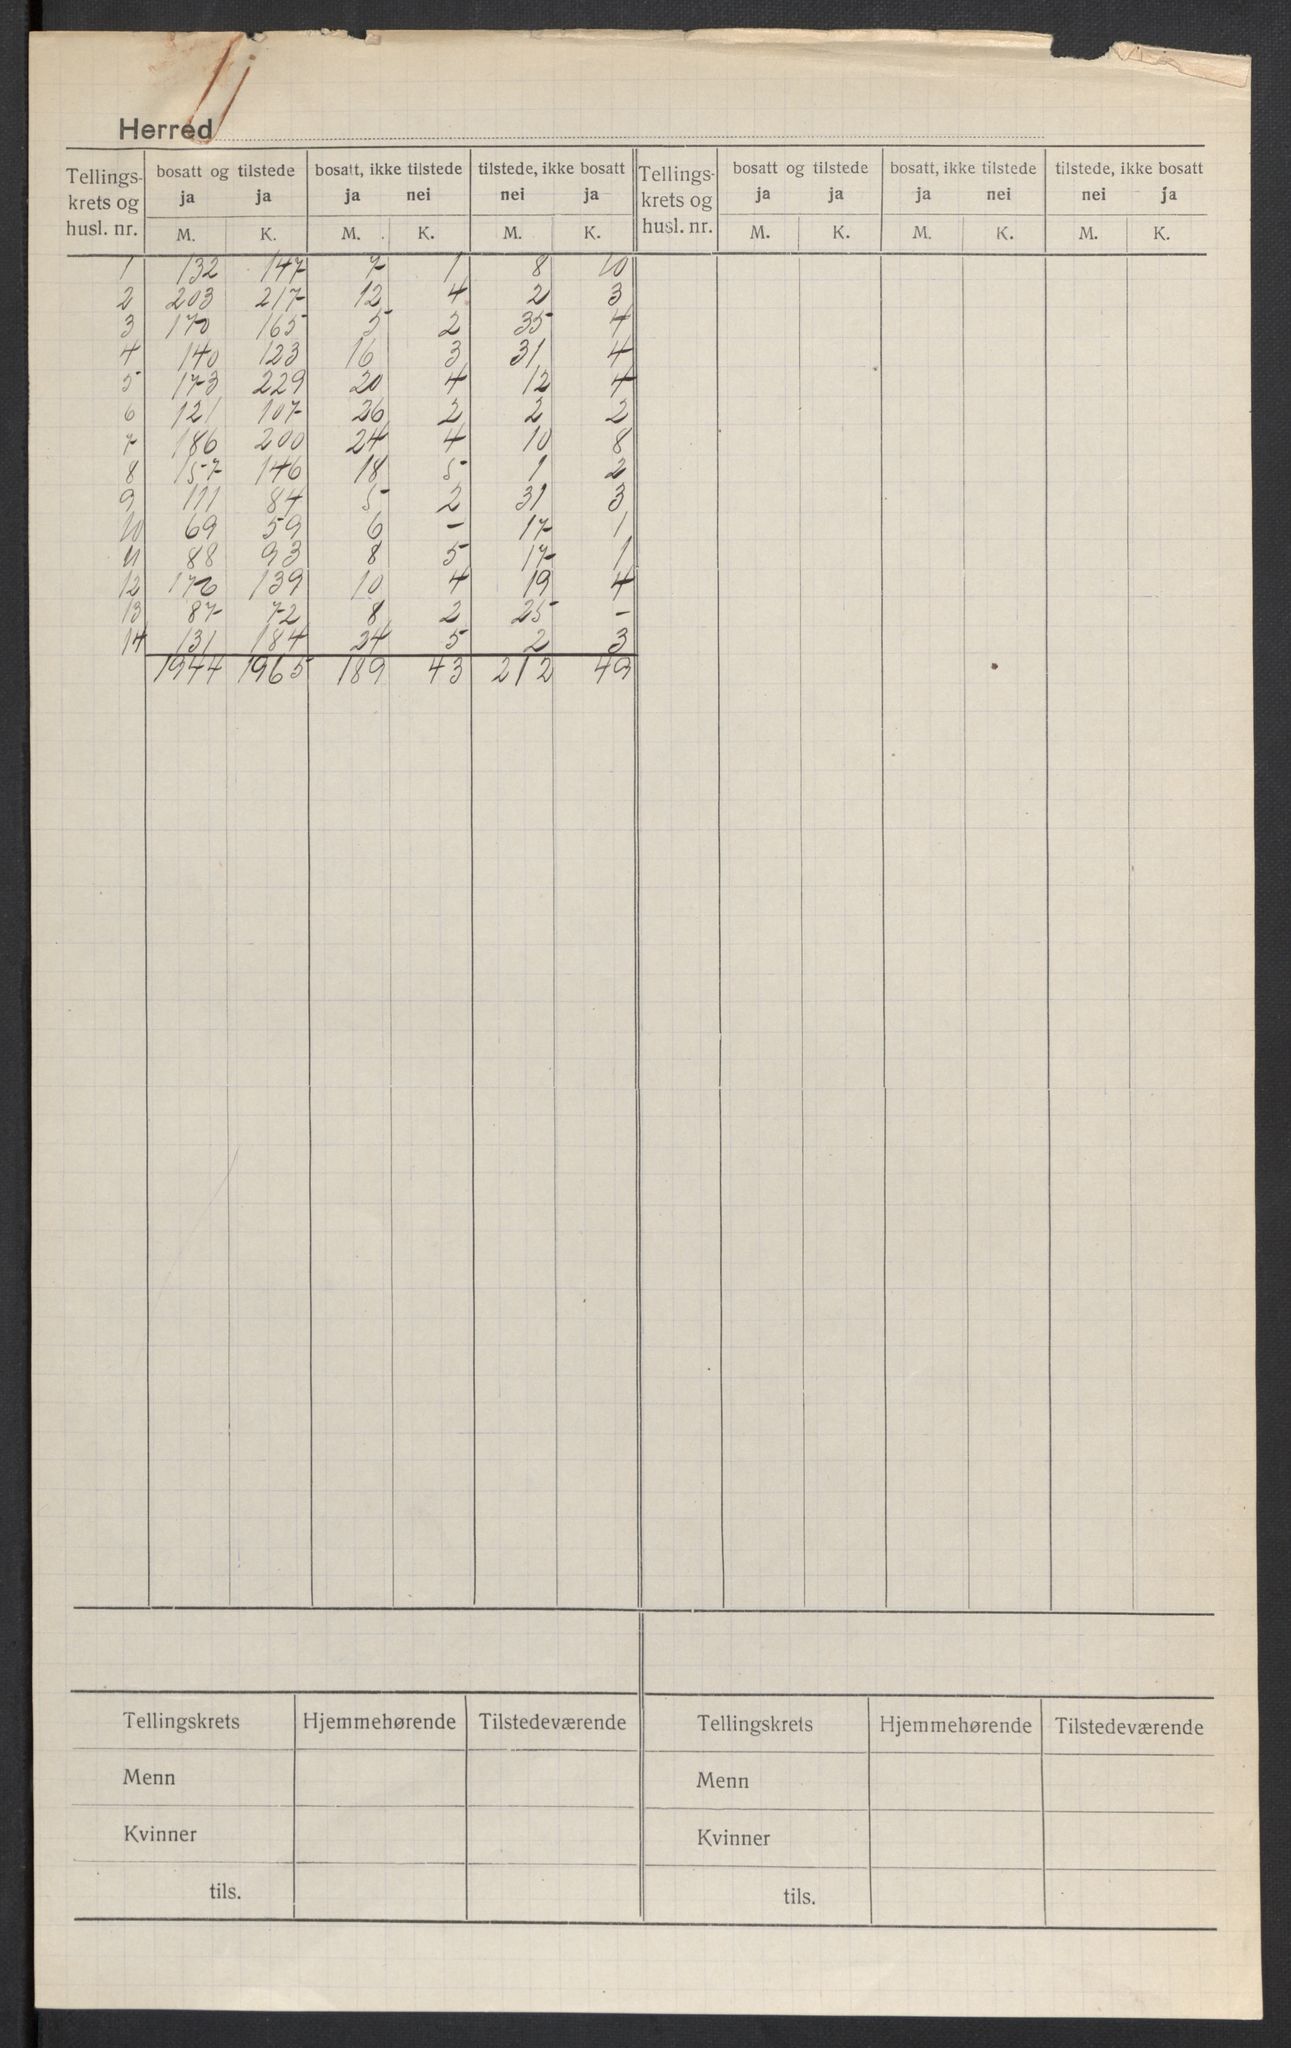 Herred
Tellings-krets og husl. nr. bosatt og tilstede bosatt, ikke tilstede tilstede, ikke bosatt Tellings-krets og husl. nr. bosatt og tilstede bosatt, ikke tilstede tilstede, ikke bosatt
ja ja ja nei nei ja ja ja ja nei nei ja
M. K. M. K. M. K. M. K. M. K. M. K.
1 132 147 7 1 8 10
2 203 217 12 4 2 3
3 170 165 5 2 35 4
4 140 123 16 3 31 4
5 173 229 20 4 12 4
6 121 107 26 2 2 2
7 186 200 24 4 10 8
8 157 146 18 5 1 2
9 111 84 5 2 31 3
10 69 59 6 - 17 1
11 88 93 8 5 17 1
12 176 139 10 4 19 4
13 87 72 8 2 25 -
14 131 184 24 5 2 3
1944 1965 189 43 212 49
Tellingskrets Hjemmehørende Tilstedeværende Tellingskrets Hjemmehørende Tilstedeværende
Menn Menn
Kvinner Kvinner
tils. tils.